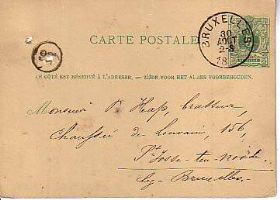 CARTE POSTALE
BRUXELLES
30
AOUT
18
CE CÔTÉ EST RÉSERVÉ À L'ADRESSE. — ZIJDE VOOR HET ADRES VOORBEHOUDEN.
Monsieur
Chaussée de Louvain, 156,
St Josse-ten-Noode
lez-Bruxelles.